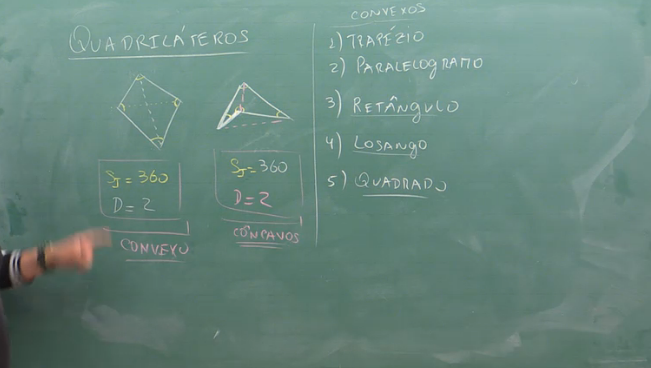 QUADRILÁTEROS
SI = 360
D = 2
CONVEXO
SI = 360
D = 2
CÔNCAVOS
CONVEXOS
1) TRAPÉZIO
2) PARALELOGRAMO
3) RETÂNGULO
4) LOSANGO
5) QUADRADO